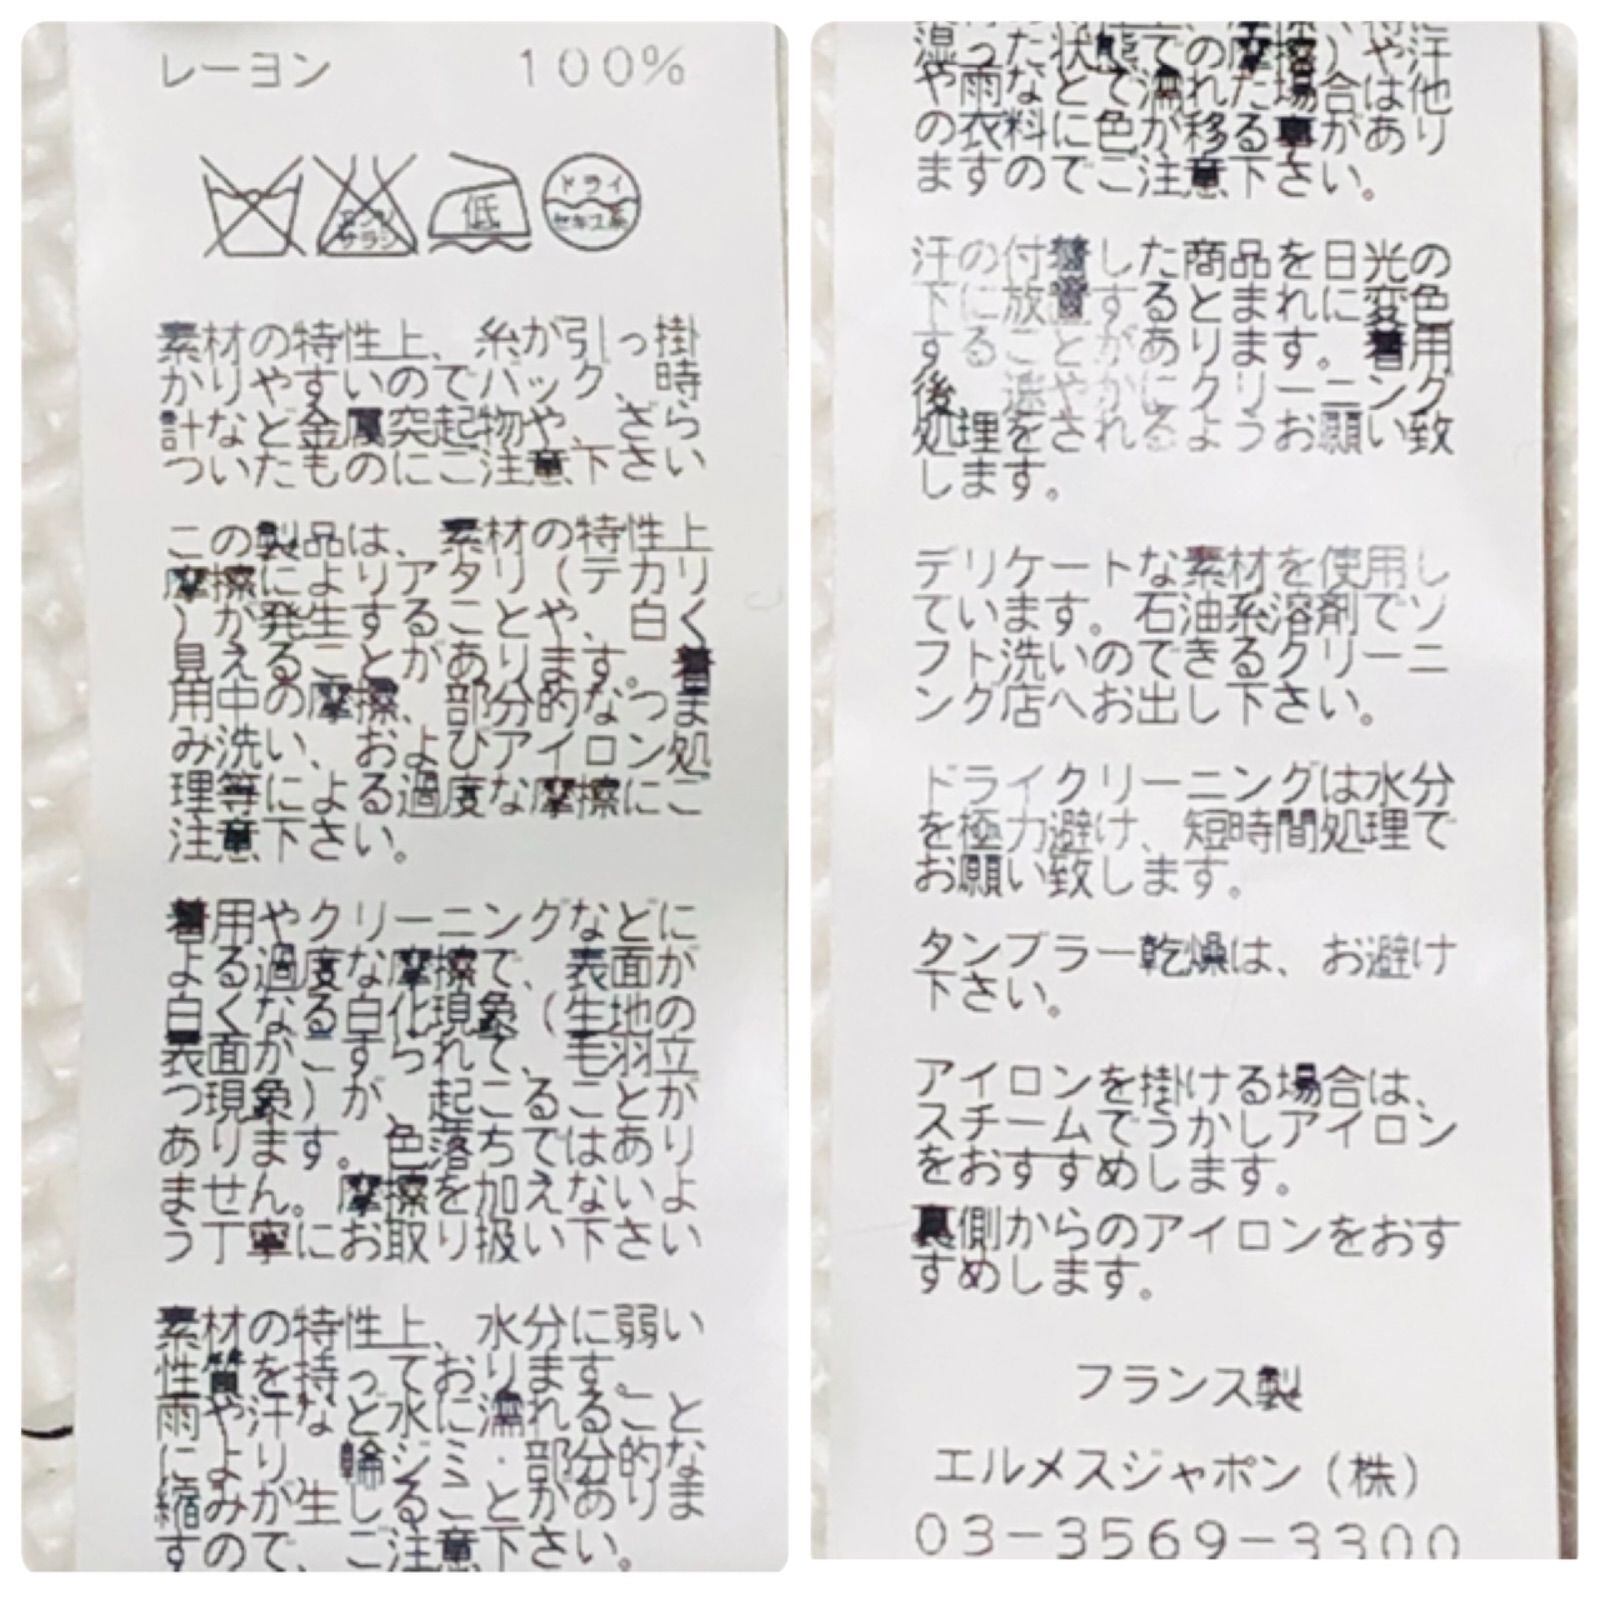 レーヨン 100%
エンソ
サラシ
低
ドライ
セキユ系
素材の特性上、糸が引っ掛
かりやすいのでバッグ、時
計など金属突起物や、ざら
ついたものにご注意下さい
この製品は、素材の特性上
摩擦によりアタリ(テカリ
)が発生することや、白く
見えることがあります。着
用中の摩擦、部分的なつま
み洗い、およびアイロン処
理等による過度な摩擦にご
注意下さい。
着用やクリーニングなどに
よる過度な摩擦で、表面が
白くなる白化現象(生地の
表面がこすられて、毛羽立
つ現象)が、起こることが
あります。色落ちではあり
ません。摩擦を加えないよ
う丁寧にお取り扱い下さい
素材の特性上、水分に弱い
性質を持っております。
雨や汗など水に濡れること
により、輪ジミ・部分的な
縮みが生じることがありま
すので、ご注意下さい。
湿った状態での摩擦)や汗
や雨などで濡れた場合は他
の衣料に色が移る事があり
ますのでご注意下さい。
汗の付着した商品を日光の
下に放置するとまれに変色
することがあります。着用
後、速やかにクリーニング
処理をされるようお願い致
します。
デリケートな素材を使用し
ています。石油系溶剤でソ
フト洗いのできるクリーニ
ング店へお出し下さい。
ドライクリーニングは水分
を極力避け、短時間処理で
お願い致します。
タンブラー乾燥は、お避け
下さい。
アイロンを掛ける場合は、
スチームでうかしアイロン
をおすすめします。
裏側からのアイロンをおす
すめします。
フランス製
エルメスジャポン(株)
03-3569-3300